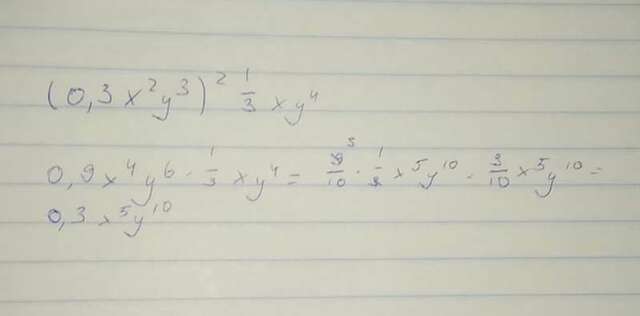 (0,3x²y³)² 1/3 xy⁴
0,9x⁴y⁶ · 1/3 xy⁴ = 9/10 · 1/3 x⁵y¹⁰ = 3/10 x⁵y¹⁰ =
0,3x⁵y¹⁰